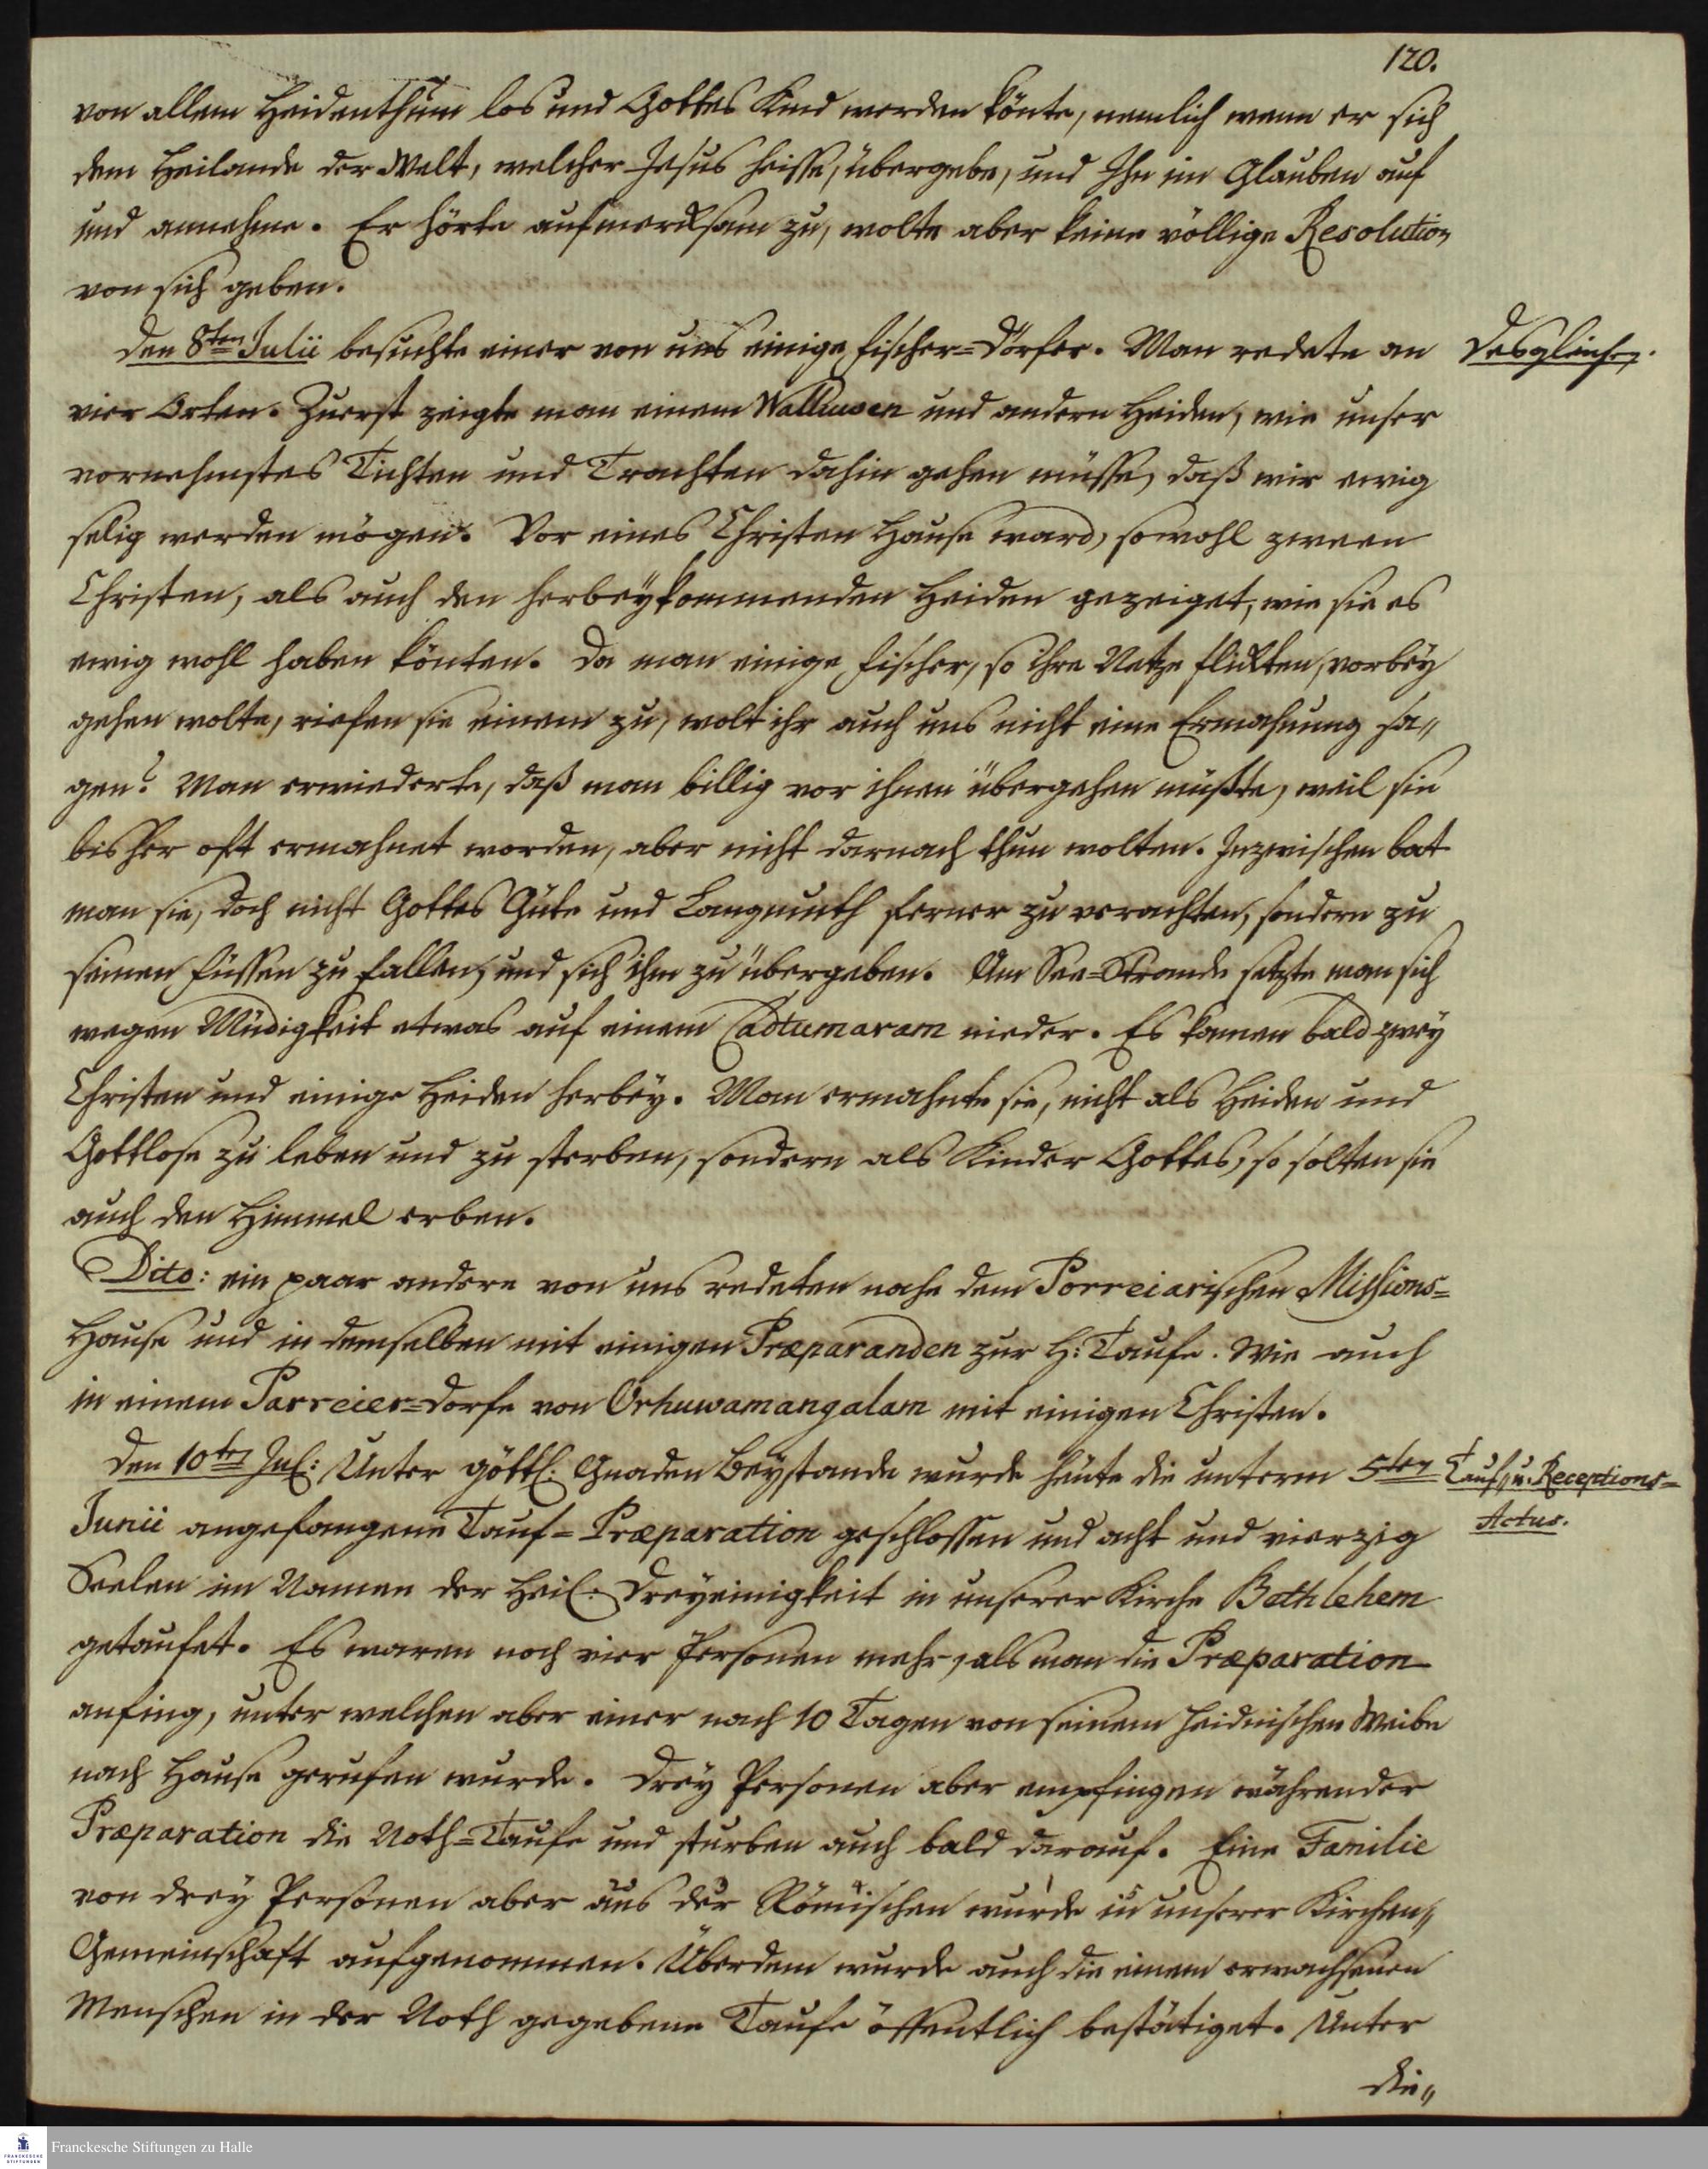 120.
von allem Heidenthum los und Gottes Kind werden könte, nemlich wenn er sich
dem Heilande der Welt, welcher Jesus heisse, übergebe, und Ihn im Glauben auf
und annehme. Er hörte aufmercksam zu, wolte aber keine völlige Resolution
von sich geben.
Den 8ten Julii besuchte einer von uns einige Fischer=Dörfer. Man redete an
Desgleichen.
vier Orten. Zuerst zeigte man einem Walluwen und andern Heiden, wie unser
vornehmstes Tichten und Trachten dahin gehen müsse, daß wir ewig
selig werden mögen. Vor eines Christen Hause ward, sowohl zween
Christen, als auch den herbeykommenden Heiden gezeiget, wie sie es
ewig wohl haben könten. Da man einige Fischer, so ihre Netze flickten, vorbey
gehen wolte, riefen sie einem zu, wolt ihr auch uns nicht eine Ermahnung sa„
gen? Man erwiederte, daß man billig vor ihnen übergehen müßte, weil sie
bisher oft ermahnet worden, aber nicht darnach thun wolten. Inzwischen bat
man sie, doch nicht Gottes Güte und Langmuth ferner zu verachten, sondern zu
seinen Füssen zu fallen, und sich ihm zu übergeben. Am See=Strande setzte man sich
wegen Müdigkeit etwas auf einem Cadtumaram nieder. Es kamen bald zwey
Christen und einige Heiden herbey. Man ermahnte sie, nicht als Heiden und
Gottlose zu leben und zu sterben, sondern als Kinder Gottes, so solten sie
auch den Himmel erben.
Dito: ein paar andere von uns redeten nahe dem Porreiarischen Missions=
Hause und in demselben mit einigen Præparanden zur H: Taufe. Wie auch
in einem Parreier=Dorfe von Orhuwamangalam mit einigen Christen.
Den 10ten Jul: Unter göttl: Gnaden Beystande wurde heute die unterm 5ten
Tauf„ u. Receptions=
Actus.
Junii angefangene Tauf=Præparation geschlossen und acht und vierzig
Seelen im Namen der Heil: Dreyeinigkeit in unserer Kirche Bethlehem
getaufet. Es waren noch vier Personen mehr, als man die Præparation
anfing, unter welchen aber einer nach 10 Tagen von seinem heidnischen Weibe
nach Hause gerufen wurde. Drey Personen aber empfingen währender
Præparation die Noth=Taufe und sturben auch bald darauf. Eine Familie
von drey Personen aber aus der Römischen wurde in unserer Kirchen„
Gemeinschaft aufgenommen. Überdem wurde auch die einem erwachsenen
Menschen in der Noth gegebene Taufe öffentlich bestätiget. Unter
die„
FRANCKESCHE
STIFTUNGEN
Franckesche Stiftungen zu Halle